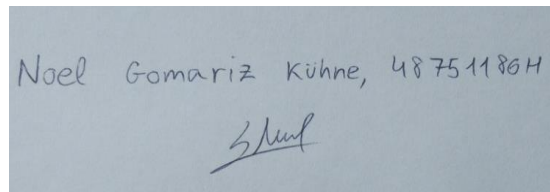 Noel Gomariz Kühne, 48751186H